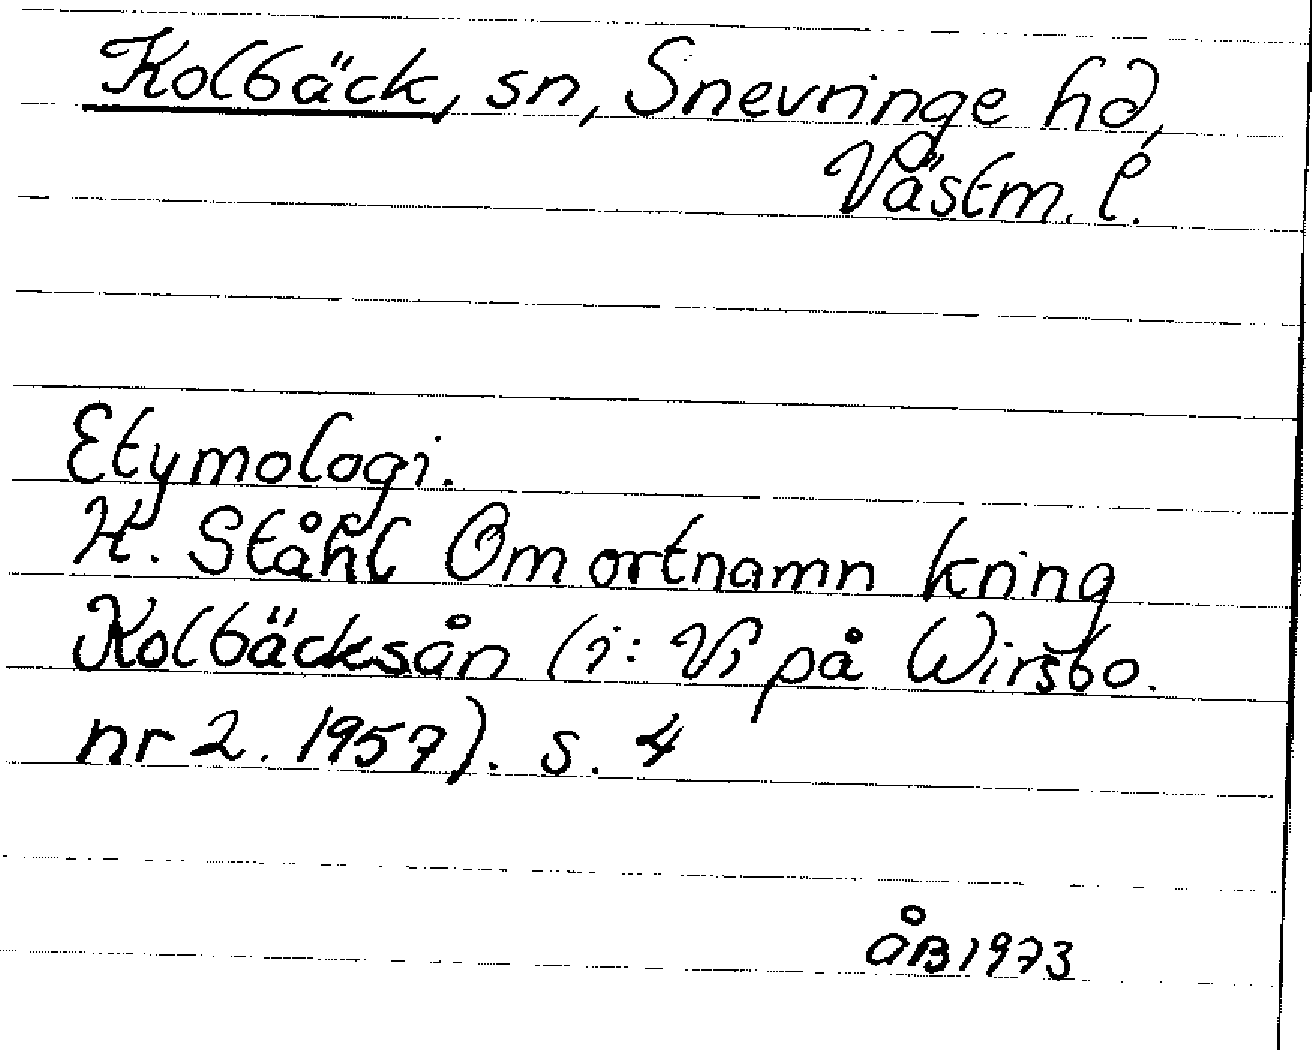 Kolbäck, sn, Snevringe hd,
Västm. l.
Etymologi.
H. Ståhl Om ortnamn kring
Kolbäcksån (i: Vi på Wirsbo.
nr 2. 1957). s. 4
ÅB 1973